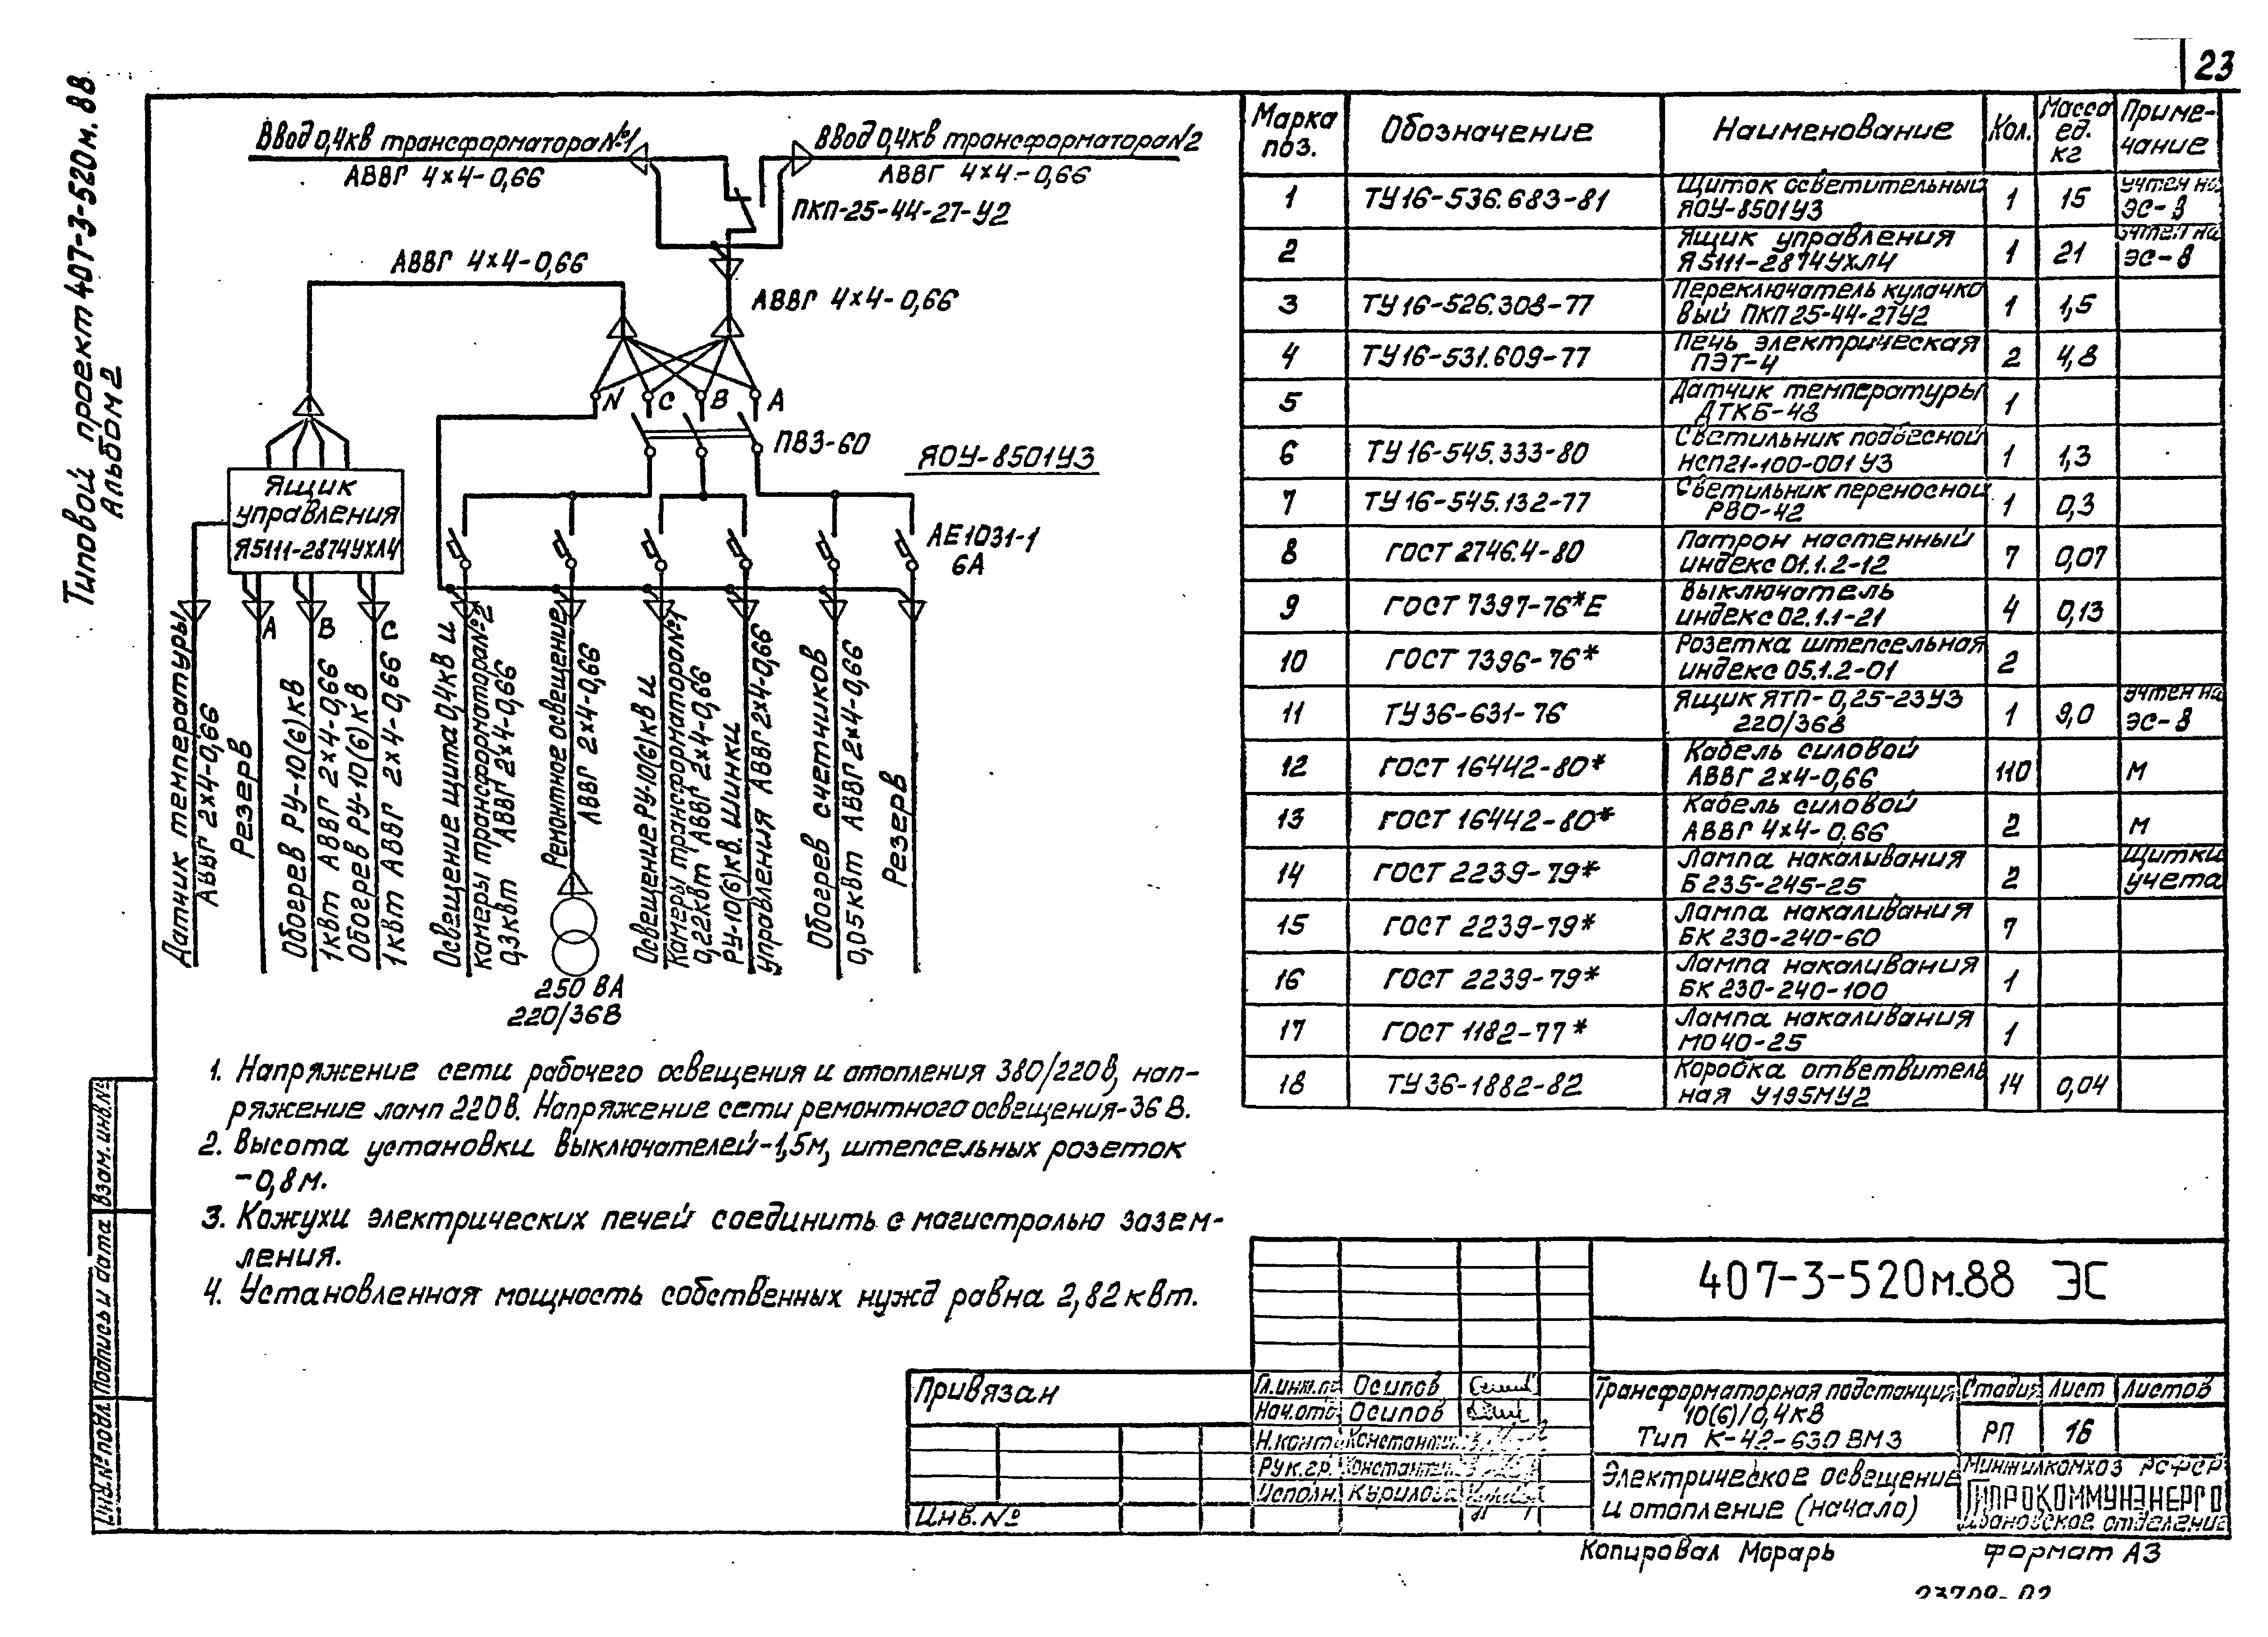 23
Типовой проект 407-3-520м.88
Альбом 2
Ввод 0,4кв трансформатора №1
АВВГ 4×4-0,66
Ввод 0,4кв трансформатора N2
АВВГ 4×4-0,66
ПКП-25-44-27-У2
АВВГ 4×4-0,66
АВВГ 4×4-0,66
N С В А
ПВЗ-60
ЯОУ-8501У3
Ящик
управления
Я5111-2874УХЛ4
АЕ1031-1
6А
А В С
Датчик температуры
АВВГ 2×4-0,66
Резерв
Обогрев РУ-10(6)кВ
1квт АВВГ 2×4-0,66
Обогрев РУ-10(6)кВ
1квт АВВГ 2×4-0,66
Освещение щита 0,4кв и
камеры трансформатора№2
0,3квт АВВГ 2×4-0,66
Ремонтное освещение
АВВГ 2×4-0,66
250 ВА
220/36В
Освещение РУ-10(6)кв и
камеры трансформатора№1
0,22квт АВВГ 2×4-0,66
РУ-10(6)кв. Шинки
управления АВВГ 2×4-0,66
Обогрев счетчиков
0,05квт АВВГ 2×4-0,66
Резерв
1. Напряжение сети рабочего освещения и отопления 380/220в, нап-
ряжение ламп 220В. Напряжение сети ремонтного освещения-36В.
2. Высота установки выключателей-1,5м, штепсельных розеток
-0,8м.
3. Кожухи электрических печей соединить с магистралью зазем-
ления.
4. Установленная мощность собственных нужд равна 2,82квт.
Марка поз. Обозначение Наименование Кол. Масса ед. кг Приме-чание
1 ТУ16-536.683-81 Щиток осветительный ЯОУ-8501У3 1 15 учтен на ЭС-8
2 Ящик управления Я5111-2874УХЛ4 1 21 учтен на ЭС-8
3 ТУ16-526.308-77 Переключатель кулачко вый ПКП25-44-27У2 1 1,5
4 ТУ16-531.609-77 Печь электрическая ПЭТ-4 2 4,8
5 Датчик температуры ДТКБ-48 1
6 ТУ16-545.333-80 Светильник подвесной НСП21-100-001У3 1 1,3
7 ТУ16-545.132-77 Светильник переносной РВО-42 1 0,3
8 ГОСТ 2746.4-80 Патрон настенный индекс 01.1.2-12 7 0,07
9 ГОСТ 7397-76*Е Выключатель индекс 02.1.1-21 4 0,13
10 ГОСТ 7396-76* Розетка штепсельная индекс 05.1.2-01 2
11 ТУ36-631-76 Ящик ЯТП-0,25-23У3 220/36В 1 9,0 учтен на ЭС-8
12 ГОСТ 16442-80* Кабель силовой АВВГ 2×4-0,66 110 м
13 ГОСТ 16442-80* Кабель силовой АВВГ 4×4-0,66 2 м
14 ГОСТ 2239-79* Лампа накаливания Б 235-245-25 2 Щитки учета
15 ГОСТ 2239-79* Лампа накаливания БК 230-240-60 7
16 ГОСТ 2239-79* Лампа накаливания БК 230-240-100 1
17 ГОСТ 1182-77* Лампа накаливания МО 40-25 1
18 ТУ36-1882-82 Коробка ответвитель ная У195МУ2 14 0,04
Взам. инв.№
Подпись и дата
Инв.№ подл.
Привязан
Инв.№
407-3-520м.88 ЭС
Гл.инж.пр Осипов
Нач.отд Осипов
Н.конт. Константин
Рук.гр. Константин
Исполн. Курилова
Трансформаторная подстанция
10(6)/0,4кв
Тип К-42-630ВМ3
Стадия Лист Листов
РП 16
Электрическое освещение
и отопление (начало)
Минжилкомхоз РСФСР
ГИПРОКОММУНЭНЕРГО
Ивановское отделение
Копировал Морарь
формат А3
23709-02